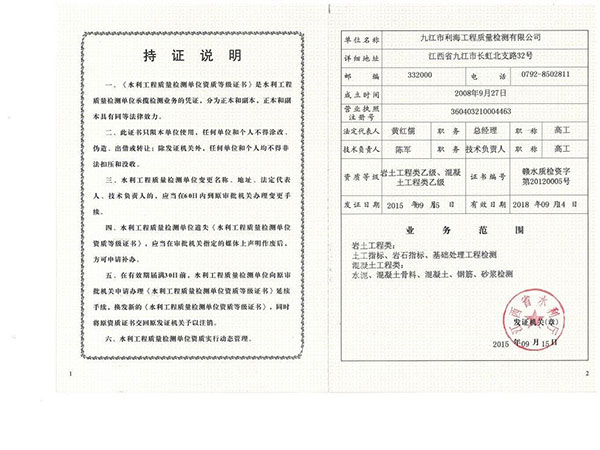 持证说明
一、《水利工程质量检测单位资质等级证书》是水利工程
质量检测单位承揽检测业务的凭证，分为正本和副本，正本和副
本具有同等法律效力。
二、此证书只限本单位使用，任何单位和个人不得涂改、
伪造、出借或转让；除发证机关外，任何单位和个人均不得非
法扣压和没收。
三、水利工程质量检测单位变更名称、地址、法定代表
人、技术负责人的，应当在60日内到原审批机关办理变更手
续。
四、水利工程质量检测单位遗失《水利工程质量检测单位
资质等级证书》，应当在审批机关指定的媒体上声明作废后，
方可申请补办。
五、在有效期届满30日前，水利工程质量检测单位向原审
批机关申请办理《水利工程质量检测单位资质等级证书》延续
手续，换发新的《水利工程质量检测单位资质等级证书》，同时
将原资质证书交回原发证机关予以注销。
六、水利工程质量检测单位资质实行动态管理。
1
单位名称 九江市利海工程质量检测有限公司
详细地址 江西省九江市长虹北支路32号
邮编 332000 电话 0792-8502811
成立时间 2008年9月27日
营业执照
注册号 360403210004463
法定代表人 黄红儒 职务 总经理 职称 高工
技术负责人 陈军 职务 技术负责人 职称 高工
资质等级 岩土工程类乙级、混凝
土工程类乙级 证书编号 赣水质检资字
第20120005号
发证日期 2015年09月15日 有效日期 2018年09月14日
业务范围
岩土工程类：
土工指标、岩石指标、基础处理工程检测
混凝土工程类：
水泥、混凝土骨料、混凝土、钢筋、砂浆检测
江西省水利厅
发证机关(章)
2015年09月15日
2